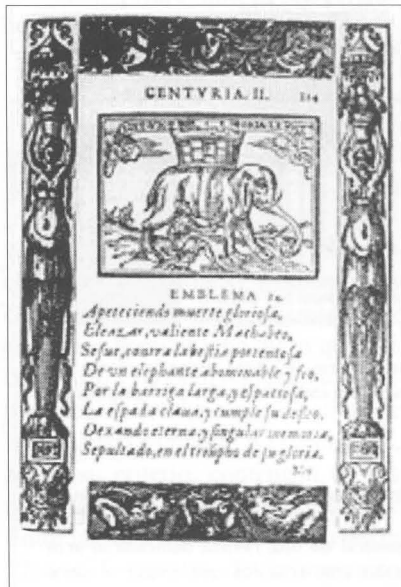 CENTVRIA. II. 214
EMBLEMA 14.
Apeteciendo muerte gloriosa,
Eleazar, valiente Machabeo,
Se fue, contra la bestia portentosa
De vn elephante abominable y feo,
Por la barriga larga, y espaciosa,
La espada claua, y cumple su desseo,
Dexando eterna, y singular memoria,
Sepultado, en el triũpho de su gloria.